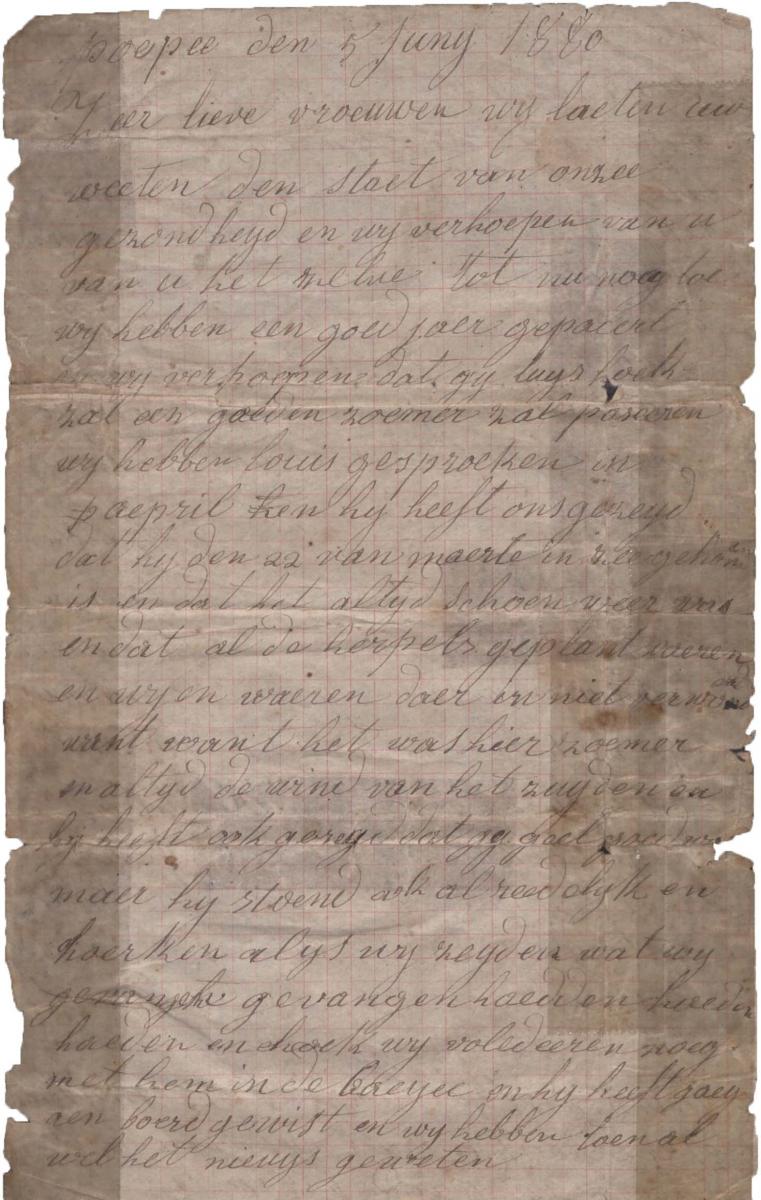 poepee den 5 Juny 1880
Zeer lieve vroeuwen wy laeten uw
weeten den staet van onzee
gezondheyd en wy verhoepen van u
van u het zelve tot nu noeg toe
wy hebben een goed jaer gepaeert
en wy verhoepen dat gy luys hoek
zal een goeden zoemer zal paseeren
wy hebben louis gesproeken in
aepril en hy heeft ons gezeyd
dat hy den 22 van maerte in zee
is en dat het altyd schoen weer was
en dat al de herpels geplant waeren
en wy en waeren daer in niet
want want het was hier zoemer
en altyd de wind van het zuyden en
hy heeft ook gezeyd dat gy goed
maer hy stoend ook al reedelyk en
hoerken alys wy zeyden wat wy
gevangen haeden
haeden en hoek wy voledeeren noeg
met hem in de baeyee en hy heeft
aen boerd gewist en wy hebben toen al
wel het nieuys geweten